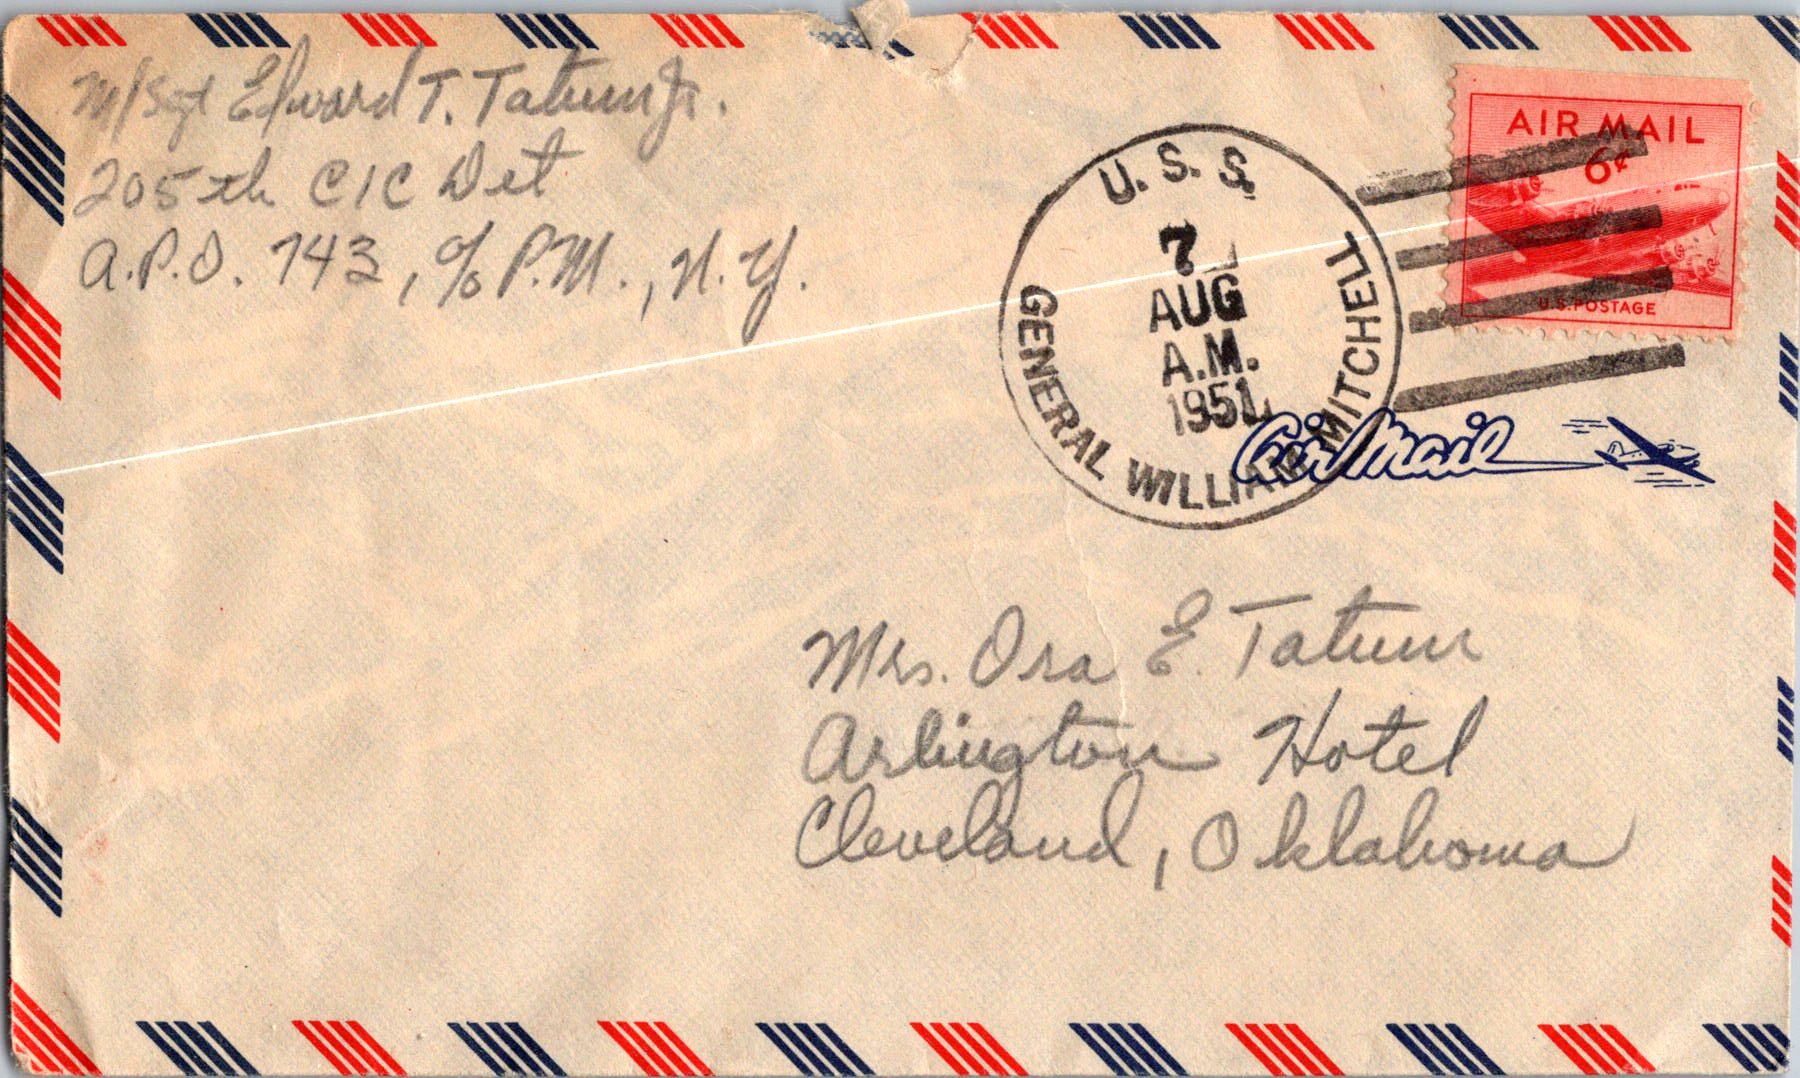 M/Sgt Edward T. Tatum Jr.
205th CIC Det
A.P.O. 743, c/o P.M., N.Y.
U.S.S.
GENERAL WILLIAM MITCHELL
7
AUG
A.M.
1951
AIR MAIL
6¢
U.S. POSTAGE
Air Mail
Mrs. Ora E. Tatum
Arlington Hotel
Cleveland, Oklahoma